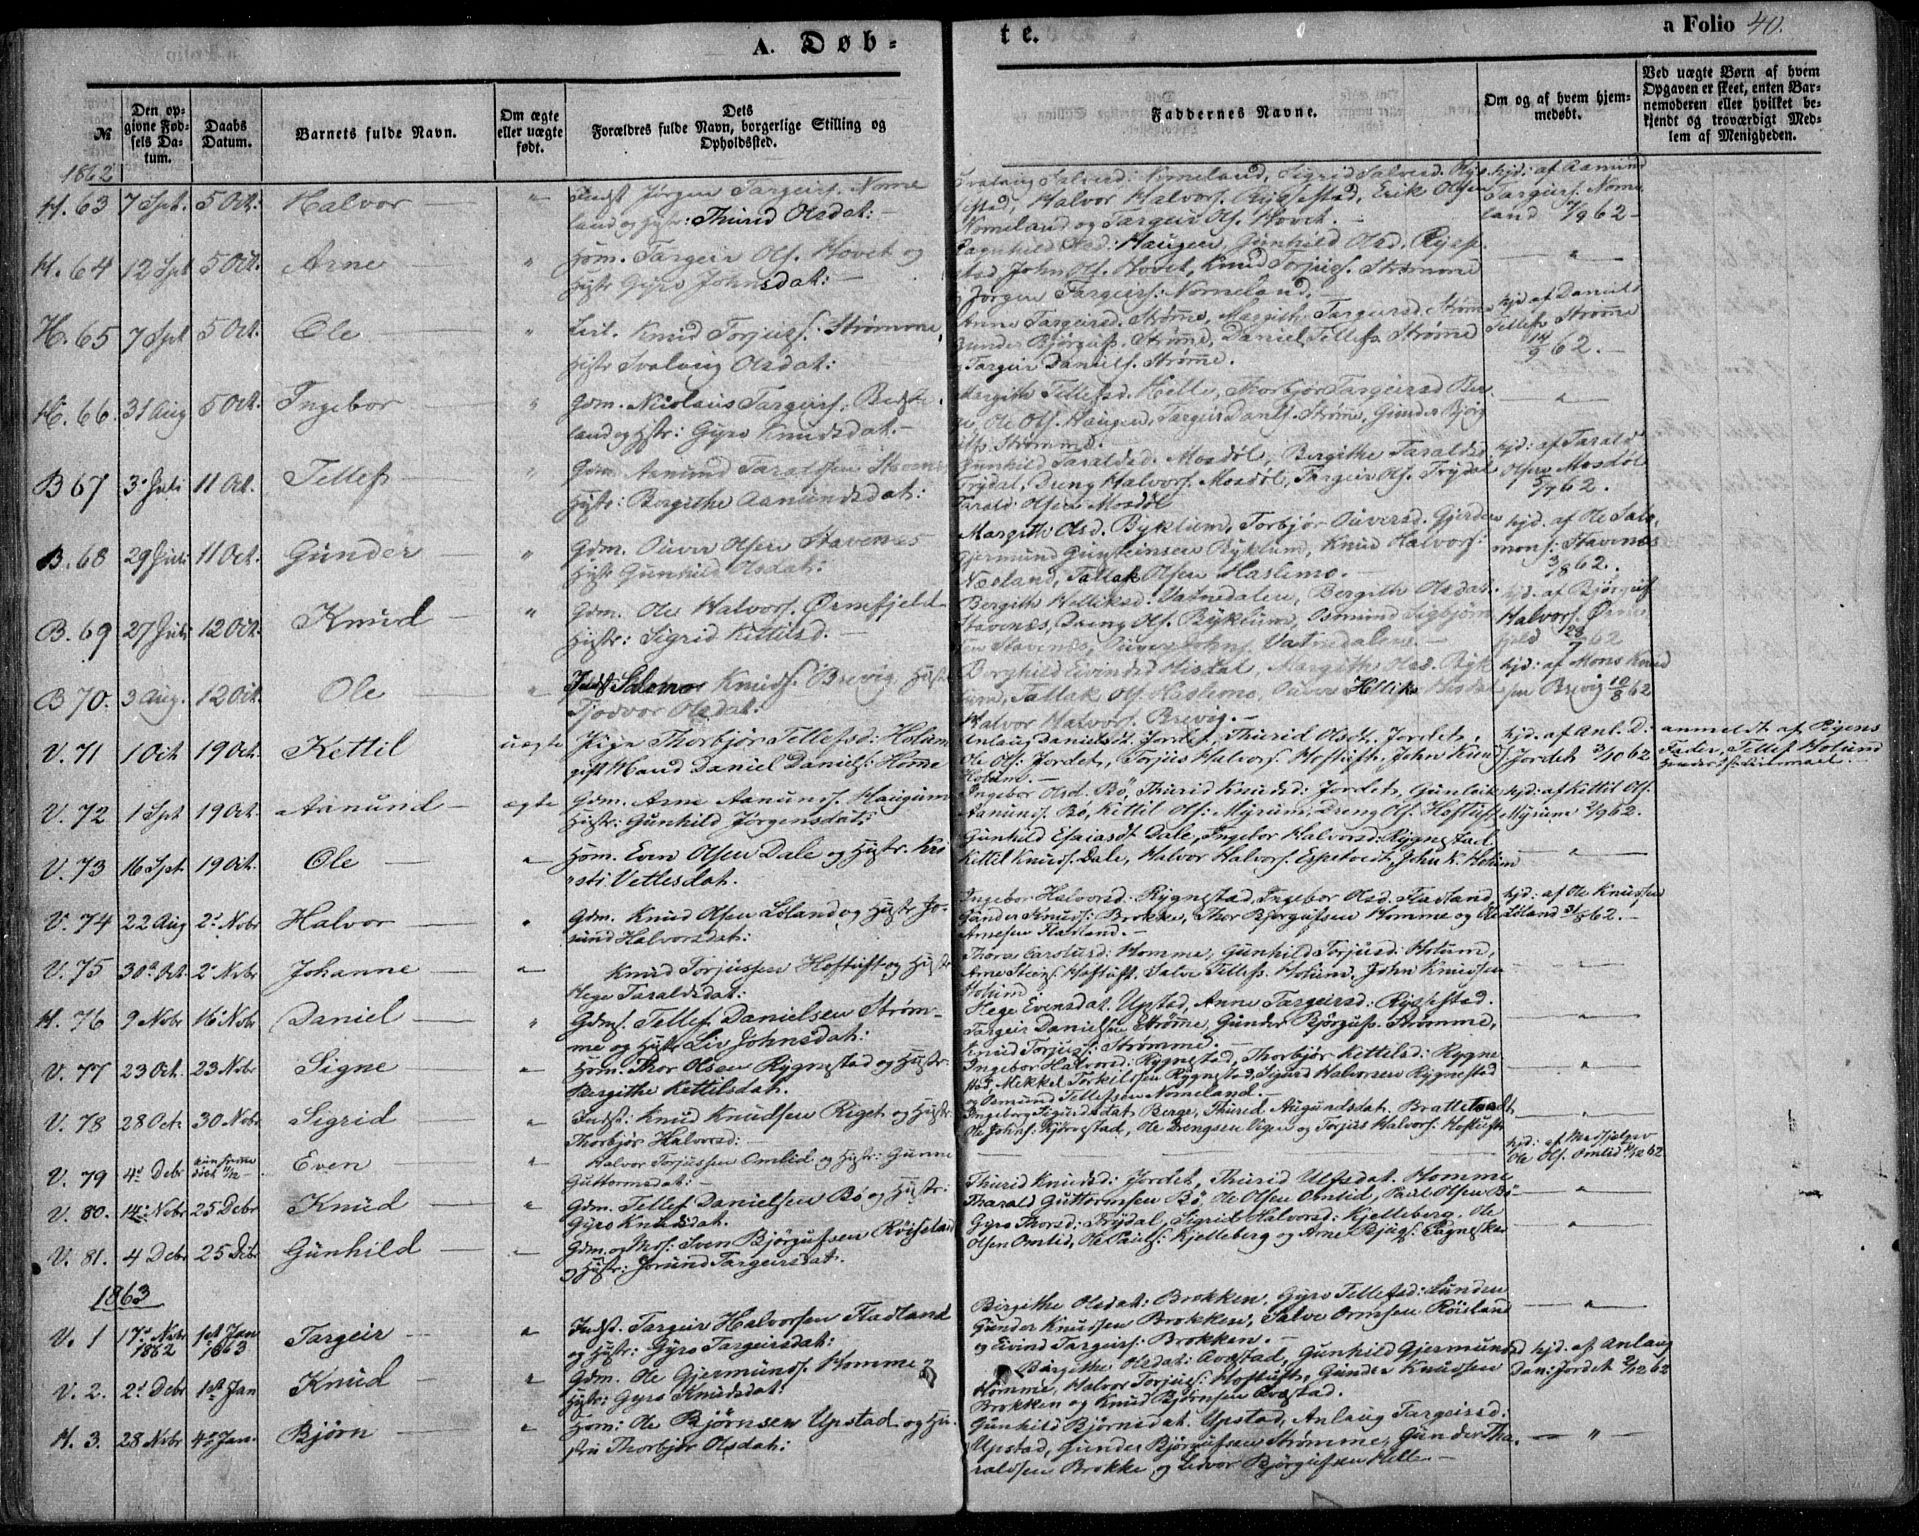 A. Døb-
te.
a Folio 40.
№
Den op-
givne Fød-
sels Da-
tum.
Daabs
Datum.
Barnets fulde Navn.
Om ægte
eller uægte
født.
Dets
Forældres fulde Navn, borgerlige Stilling og
Opholdssted.
Faddernes Navne.
Om og af hvem hjem-
medøbt.
Ved uægte Børn af hvem
Opgaven er skeet, enten Bar-
nemoderen eller hvilket be-
kjendt og troværdigt Med-
lem af Menigheden.
1862
H. 63 7 Spt. 5 Oct: Halvor " Indst Jørgen Targeirs. Nome
land og Hstr: Thurid Olsdat:
Svalaug Salvesd: Nomeland, Sigrid Salvesd. Rys
stad, Halvor Halvors. Rysstad, Erik Olsen
Nomeland og Targeir Ols. Hovet.
hjd: af Aamund
Targeirs. Nome
land 7/9 62
H. 64 12 Spt 5 Oct. Arne " Hom. Targeir Ols. Hovet og
Histr Gyro Johnsdat:
Ragnhild Olsd: Haugen, Gunhild Olsd. Rys
stad, John Ols. Hovet, Knud Torjus. Strømme
og Jørgen Targeirs: Nomeland. "
H. 65 7 Spt 5 Oct. Ole " Knud Torjuss: Strømme,
Histr Svalaug Olsdat:
Anne Targeirsd. Strømme, Margith Targeirsd. Strømme
Gunder Bjørgufs. Strømme, Daniel Tellefs. Strømme
og Targeir Daniels. Strømme.
hjd af Daniel
Tellefs Strømme
14/9 62.
H. 66 31 Aug 5 Oct. Ingebor " Gdm. Nicolaus Targeirs:
land og Hstr: Gyro Knudsdat:
Margith Tellefsd. Helle, Thorbjør Targeirsd Ber
ge, Ole Ols. Haugen, Targeir Danils. Strøme, Gunder Bjørg
ufs. Strømme. "
B 67 3 Juli 11 Oct. Tellef " Gdm. Aamund Taraldsen Stavenes
Hstr: Bergithe Aamundsdat:
Gunhild Taraldsd. Mosdøl, Bergithe Taraldsd
Trydal, Dreng Halvors. Mosdøl, Targeir Ols. Trydal
Tarald Olsen Mosdøl
hjd: af Tarald
Olsen Mosdøl
5/7 62.
B. 68 29 Juli 11 Oct. Gunder " Gdm. Ouver Olsen Stavenes
Histr Gunhild Olsdat:
Margith Olsd. Byklum, Torbjør Ouversd. Gjerden
Gjermund Gunsteinsen Byklum, Knud Halvors:
Næsland, Tallak Olsen Haslemo.
hjd. af Ole Salo-
mons: Stavenæs
3/8 62.
B. 69 27 Juli 12 Oct. Knud " Gdm. Ole Halvors. Ørnefjeld
Histr: Sigrid Kittilsd.
Bergith Helliksd: Vatnedalen, Bergith Olsdat:
Stavenæs, Dreng Ols. Byklum, Osmund Sigbjørn
sen Stavenæs, Ouver Johns. Vatnedalen
hjd: af Bjørguf
Halvors. Ørne
fjeld 28/7 62
B 70. 3 Aug. 12 Oct. Ole " Indst Knuds. Brevig, Histr
Tjodvor Olsdat:
Borghild Eivindsd Hisdal, Margith Olsd. Byk
lum, Tallak Ols. Haslemo, Ouver Helliks. Hisdal
Halvor Halvors. Brevig.
hjd: af Mons Knud
sen Brevig 10/8 62
V. 71 1 Oct 19 Oct. Kettil uægte Pige Thorbjør Tellefsd: Holum
gift Mand Daniel Daniels: Home
Anlaug Danielsd. Jordet, Thurid Olsd. Jordet,
Ole Ols: Jordet, Torjus Halvors Hoftuft, John Knuds
Holum.
hjd. af Anl. D:
Jordet 3/10 62
anmeldt af Pigens
Fader, Tellef Holum
V. 72 1 Spt 19 Oct. Aanund ægte Gdm. Arne Aanunds. Haugum
Histr: Gunhild Jørgensdat:
Ingebor Olsd. Bø, Thurid Knudsd: Jordet, Gunleik
Aanunds. Bø, Kittil Ols: Myrum, Dreng Ols. Hoftuft
hjd: af Kittil Ols.
Myrum 2/9 62.
V. 73 16 Spt 19 Oct. Ole " Hom. Even Olsen Dale og Hustr. Kri
sti Vettlesdat.
Gunhild Esaiasdt Dale, Ingebor Halvorsd: Rygnestad
Kettel Knuds. Dale, Halvor Halvors. Espetvedt, John K. Holum "
V. 74 22 Aug 2 Nobr Halvor " Gdm. Knud Olsen Løland og Hustr Jo-
rund Halvorsdat:
Ingebor Halvorsd: Rygnestad, Ingebor Olsd. Fladland,
Gunder Knuds: Brokke, Thor Bjørgufsen Homme og Ole
Arnesen Flatland.
hjd: af Ole Knudsen
Løland 31/8 62.
V. 75 30 Oct. 2 Nobr Johanne " Knud Torjussen Hoftuft og Hustr
Hege Taraldsdat:
Thora Carlsd: Homme, Gunhild Torjusd: Holum,
Arne Steins Hoftuft, Salve Tellefs Holum, John Knudsen
Holum "
H. 76 9 Nobr 16 Nobr Daniel " Gdms. Tellef Danielsen Strøm-
me og Hustr Liv Johnsdat:
Hege Evensdat. Upstad, Anne Targeirsd: Rysstad.
Targeir Danielsen Strømme, Gunder Bjørgufs. Strømme,
Knud Torjuss: Strømme. "
V. 77 23 Oct. 23 Nobr Signe " Hom. Thor Olsen Rygnestad og Hustr:
Bergithe Kettilsdat.
Ingebor Halvorsd: Rygnestad, Thorbjør Kettelsd: Rygne
stad, Mekkel Torkilsen Rygnestad, Sigurd Halvorsen Rygnestad
og Osmund Tellefsen Nomeland. "
V. 78 28 Oct. 30 Nobr Sigrid " Indst: Knud Knudsen Riget og Hustr
Thorbjør Halvorsd:
Ingeborg Sigurdsdat Berge, Thurid Augundsdat. Brattetvedt
Ole Johns: Kjørvestad, Ole Drengsen Vigen og Torjus Halvors: Hoftuft "
V. 79 4 Debr Even " Halvor Torjussen Omlid og Hustr: Gunne
Guttormsdat:
hjd: af Medhjelper
Ole Ols. Omlid 11/12 62
V. 80. 14 Nobr 25 Debr Knud " Gdm. Tellef Danielsen Bø og Hustr:
Gyro Knudsdat.
Thurid Knudsd: Jordet, Thurid Ulfsdat. Homme
Tharald Guttormsen Bø, Ole Olsen Omlid, Paul Olsen Bø "
V. 81. 4 Debr 25 Debr Gunhild " Gdm. og Sven Bjørgufsen Røiseland
og Hustr: Jorund Targeirsdat.
Gyro Thorsd: Trydal, Sigrid Halvorsd: Kjelleberg, Ole
Olsen Omlid, Ole Pauls: Kjelleberg og Arne "
1863
V. 1 17 Nobr 1862 1st Jan 1863 Targeir " Indst. Targeir Halvorsen Fladland
og Hustr: Gyro Targeirsdat:
Birgithe Olsdat: Brokken, Gyro Tellefsd: Lunden
Gunder Knudsen Brokken, Salve Ormsen Røisland
og Eivind Targeirs: Brokken. "
V. 2. 2 Debr 1st Jan Knud " Gdm. Ole Gjermunds. Homme og
Hustr: Gyro Knudsdat:
Birgithe Olsdat: Avestad, Gunhild Gjermundsd
Homme, Halvor Torjus: Hoftuft, Gunder Knudsen
Brokken og Knud Bjørnsen Avestad.
hjd. af Anlaug
Dan: Jordet 2/12 62
H. 3. 28 Nobr 4 Jan. Bjørn " Hom: Ole Bjørnsen Upstad og Hu-
stru Thorbjør Olsdat:
Gunhild Bjørnsdat. Upstad, Anlaug Targeirsd:
Upstad, Gunder Bjørgufsen Strømme, Gunder Tha-
raldsen Brokke og Ledvor Bjørgufsen Helle "